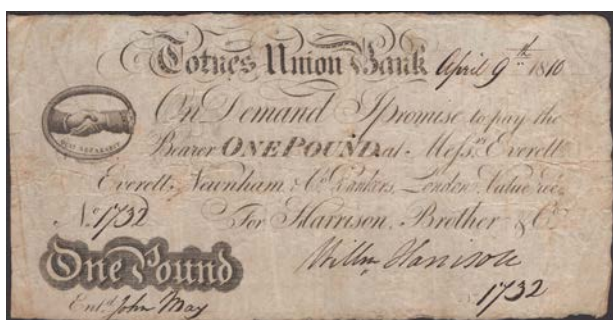 Totnes Union Bank April 9th 1810
On Demand I promise to pay the
Bearer ONE POUND at Messrs Everett
Everett, Newnham & Co Bankers, London Value recd
QUIS SEPARABIT
No 1732 For Harrison, Brother & Co
One Pound Willm Harrison
Entd John May No 1732